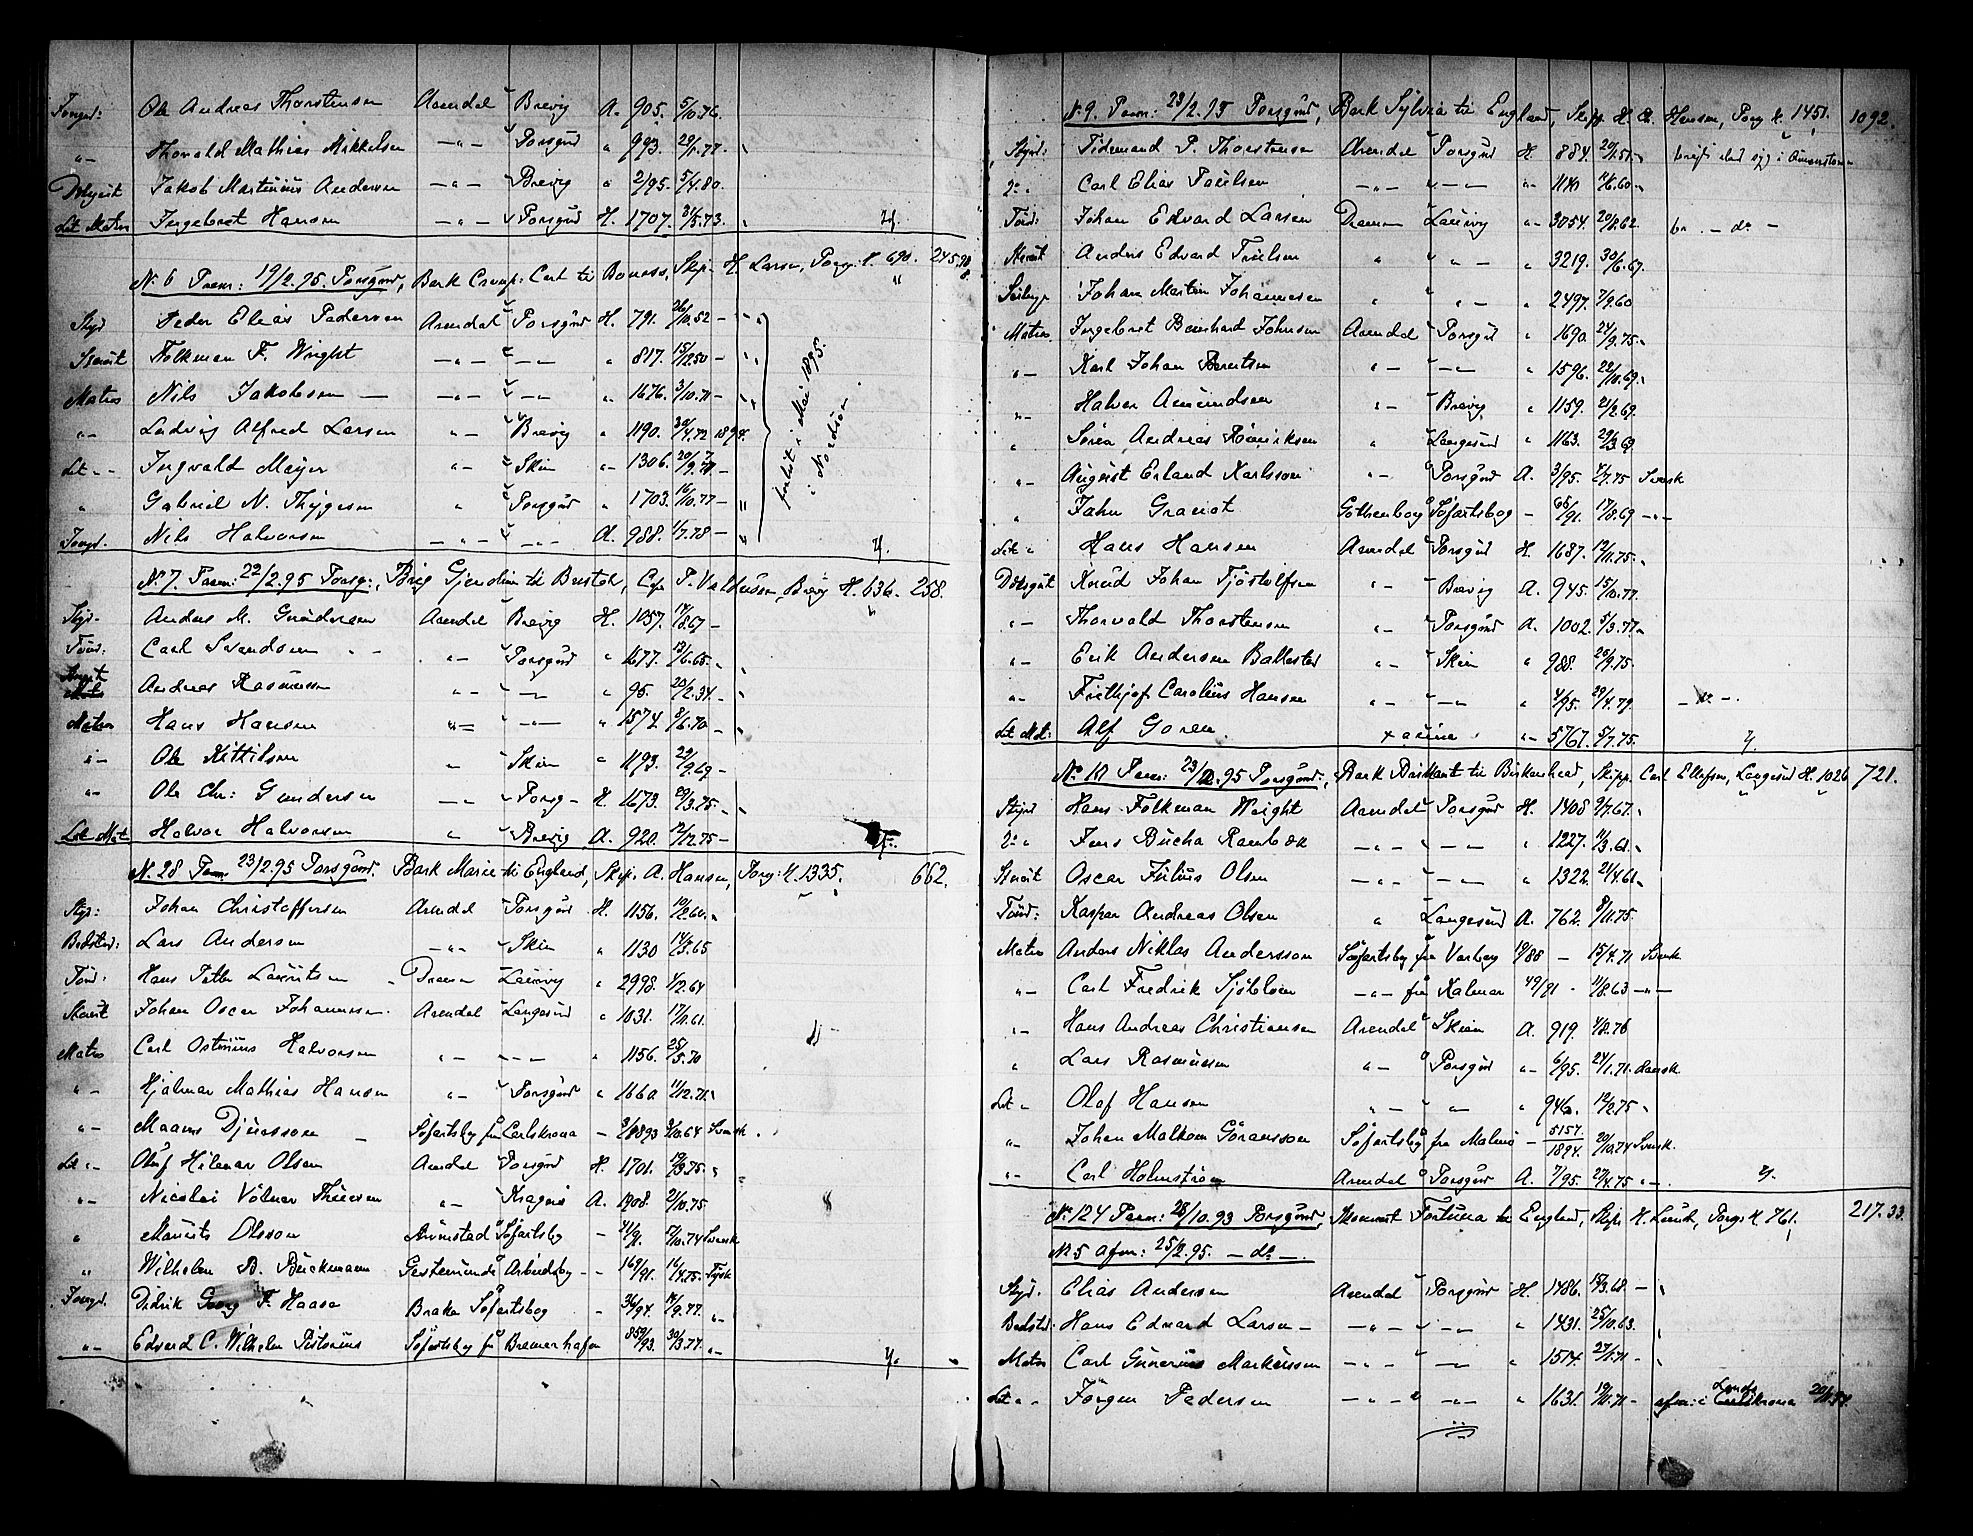 Jungm: Ole Andreas Thorstensen Arendal Brevig A. 905. 5/10.76.
"- Thorvald Mathias Mikkelsen -"- Porsgrund " 993. 29/1.77.
Dæksgut Jakob Martinius Andersen -"- Brevig " 2/95. 5/4.80.
Let Matros Ingebret Hansen -"- Porsgrund H. 1707. 31/5.73.
N. 6 Paam: 19/2.95. Porsgrund, Bark Carl til Skip. H. Larsen, Porsg. H. 690. 245.98
Styrd Peder Elias Pedersen Arendal Porsgrund H. 791. 26/10.52 -
Stuert Folkman F. Wright -"- -"- " 817. 15/12.50 -
Matros Nils Jakobsen -"- -"- " 1676. 3/10.71 -
"- Ludvig Alfred Larsen "- Brevig " 1190. 30/4.72 1894.
Let "- Ingvald Meyer "- Skien "- 1306. 20/9.77 -
" Gabriel N. Thygesen " Porsgrund " 1703. 16/10.77 -
Jungm. Nils Halvorsen -"- -"- A. 988. 1/7.78 -
forlist i Mai 1895. i Nordsöen
N. 7. Paam: 22/2.95 Porsg:, Brig Gjendin til Bristol, Cap. P. Brevig H. 636. 258.
Styr. Anders M. Gundersen Arendal Brevig H. 1057. 17/8.67 -
Tömd. Carl Svendsen "- Porsgrund " 1677. 13/6.65.
Stuert Andreas Rasmussen "- "- " 95. 20/2.34.
Matros Hans Hansen "- -"- " 1574. 8/6.70
"- Ole Kittilsen " Skien " 1193. 22/9.69 -
"- Ole Chr: Gundersen -"- Porsg - H. 1673. 29/3.75.
Let Mat Halvor Halvorsen " Brevig A. 920. 12/12.75 -
N. 28 Paam 23/2.95 Porsgrund. Bark Marie til England, Skip. A. Hansen, Porsg: H. 1335. 662.
Styr: Johan Christoffersen Arendal Porsgrund H. 1156. 10/2.60.
Bedstmd: Lars Andersen -"- Skien " 1130 14/3.65
Tömd. Hans Petter Lauritsen Drammen Laurvig " 2998. 1/2.64
Stuert Johan Oscar Johannessen Arendal Langesund " 1031. 17/11.61.
Matros Carl Halvorsen "- "- " 1156. 25/5.70
"- Hjalmar Mathias Hansen "- Porsgrund " 1660 11/12.71.
"- Maans Djursson Söfartsby fra Carlskrona - 9/10.64 Svensk.
Let "- Oluf Hilmar Olsen Arendal Porsgrund H. 1701. 19/3.75.
"- Nicolai Volmer Thuesen "- Kragerö A. 1908. 2/10.75
" Maurits Olsson Söfartsby 41/91. 7/10.74 Svensk
" Wilhelm B. Bückmann Gestemünde Arbeidsby - 169/91. 16/4.75. Tysk
Jungm. Didrik Georg F. Haase Brake Söfartsbog - 36/94. 14/9.77. "-
"- Edvard C. Wilhelm Pistorius Söfartsby fra Bremerhafen 850/93. 30/3.77. "-
N. 9. Paam: 23/2.95 Porsgrund, Bark Sylvia til England, Skipp. H. A. Hansen, Porsg H. 1451. 1092.
Styrd: Tidemand P. Thorstensen Arendal Porsgrund H. 884. 20/1.51.
2d " Carl Elias Paulsen -"- "- "- 1141 11/6.60.
Tömd: Johan Edvard Larsen Drammen Laurvig "- 3054. 20/8.62. - do -
Stuert Anders Edvard Truelsen " " - " 3219. 30/6.67.
Seilmgr Johan Martin Johannesen " " - " 2497. 7/9.60
Matros Ingebret Bernhard Johnsen Arendal Porsgrund " 1690. 24/9.75.
"- Karl Johan Berntsen "- -"- " 1596. 22/10.69.
"- Halvor Amundsen "- Brevig " 1159. 21/2.69.
" Sören Andreas Henriksen " Langesund " 1163. 29/3.69
"- August Erland Karlsson "- Porsgrund A. 3/95. 4/7.75 Svensk
" John Granat Göthenborg Söfartsbog - 68/91. 17/8.69 -"-
Let " Hans Hansen Arendal Porsgrund H. 1687. 12/11.75.
Dæksgut Knud Johan Tjöstolfsen "- Brevig A. 945. 15/10.77.
"- Thorvald Thorstensen "- Porsgrund A. 1002. 5/3.77
"- Erik Andersen Ballestad "- Skien " 988. 25/9.75.
"- Frithjof Carolius Hansen "- -"- " 4/95. 29/4.79. - do -
Let Mat: Alf Goren. "- 5767. 5/7.75.
No. 10 Paam: 23/2.95 Porsgrund, Bark til Birkenhead, Skipp. Carl Ellefsen, Langesund H. 1026 721.
Styrd Hans Folkman Wright Arendal Porsgrund H. 1408 9/7.67.
2d " Jens Bucha Rambæk -"- "- " 1227. 11/3.61.
Stuert Oscar Julius Olsen -"- -"- " 1322. 21/4.61
Tömd: Kaspar Andreas Olsen " Langesund A. 762. 8/11.75.
Matros Anders Niklas Andersson Söfartsby fra Varberg 19/88 - 15/4.71 Svensk
"- Carl Fredrik Sjöblom -"- fra Kalmar 49/81 - 11/8.63 -"-
"- Hans Andreas Christiansen Arendal Skien A. 919. 4/8.76
" Lars Rasmussen "- Porsgrund "- 6/95. 24/1.71. dansk
Let " Olaf Hansen "- "- " 946. 12/2.75
"- Johan Malkom Göransson Söfartsby fra Malmö - 5157/1894. 20/10.74 Svensk.
"- Carl Holmström Arendal Porsgrund A. 7/95. 27/4.75 "-
N. 124 Paam: 28/10.93 Porsgrund, Skonnert Fortuna til England, Skip. H. Lunde, Porsg. H. 761. 217.33
N. 5 afm: 25/2.95. - do -
Styrd. Elias Andersen Arendal Porsgrund H. 1486. 15/3.68. -
Bedstmd: Hans Edvard Larsen - -"- "- " 1431. 25/10.63.
Matros Carl Gunerius Markussen -"- "- " 1514. 27/1.71 -
Let " Jörgen Pedersen -"- -"- " 1631. 19/11.71 - afm: i Carlskrona